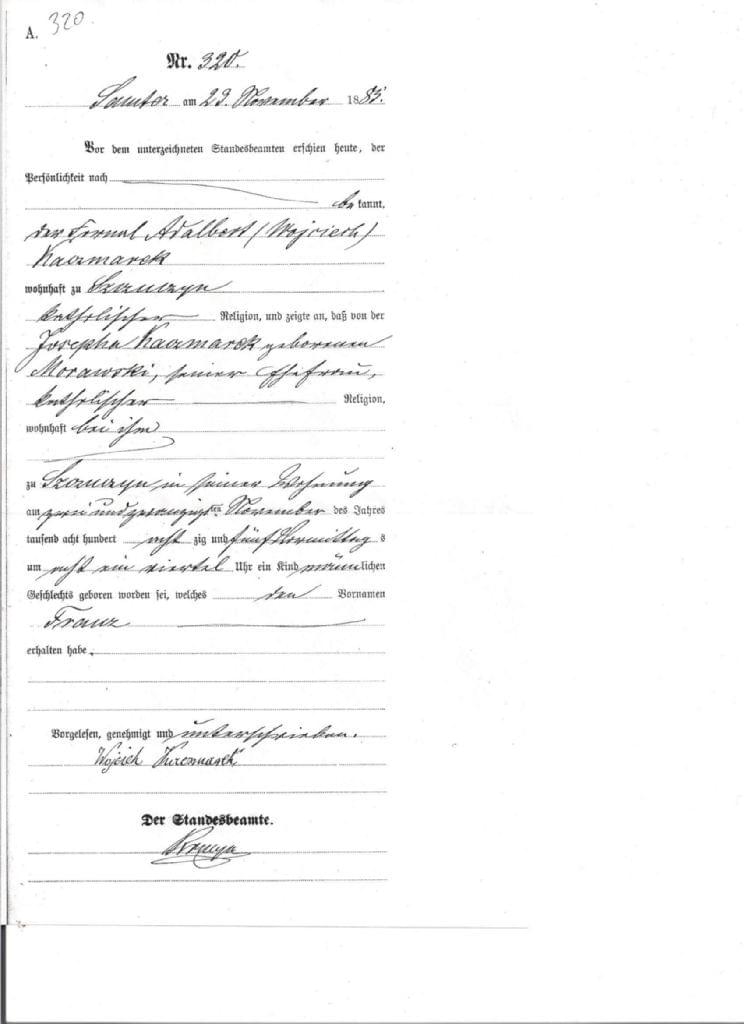 320.
A.
Nr. 320.
Samter am 23. November 1885.
Vor dem unterzeichneten Standesbeamten erschien heute, der
Persönlichkeit nach
be kannt,
der Fornal Adalbert (Wojciech)
Kaczmarek
wohnhaft zu
katholischer Religion, und zeigte an, daß von der
Josepha Kaczmarek geborenen
Morawski, seiner Ehefrau,
katholischer Religion,
wohnhaft bei ihm
zu in seiner Wohnung
am zwei und zwanzigsten November des Jahres
tausend acht hundert acht zig und fünf Vormittag s
um acht ein viertel Uhr ein Kind männlichen
Geschlechts geboren worden sei, welches den Vornamen
Franz
erhalten habe.
Vorgelesen, genehmigt und unterschrieben.
Wojciech Kaczmarek
Der Standesbeamte.